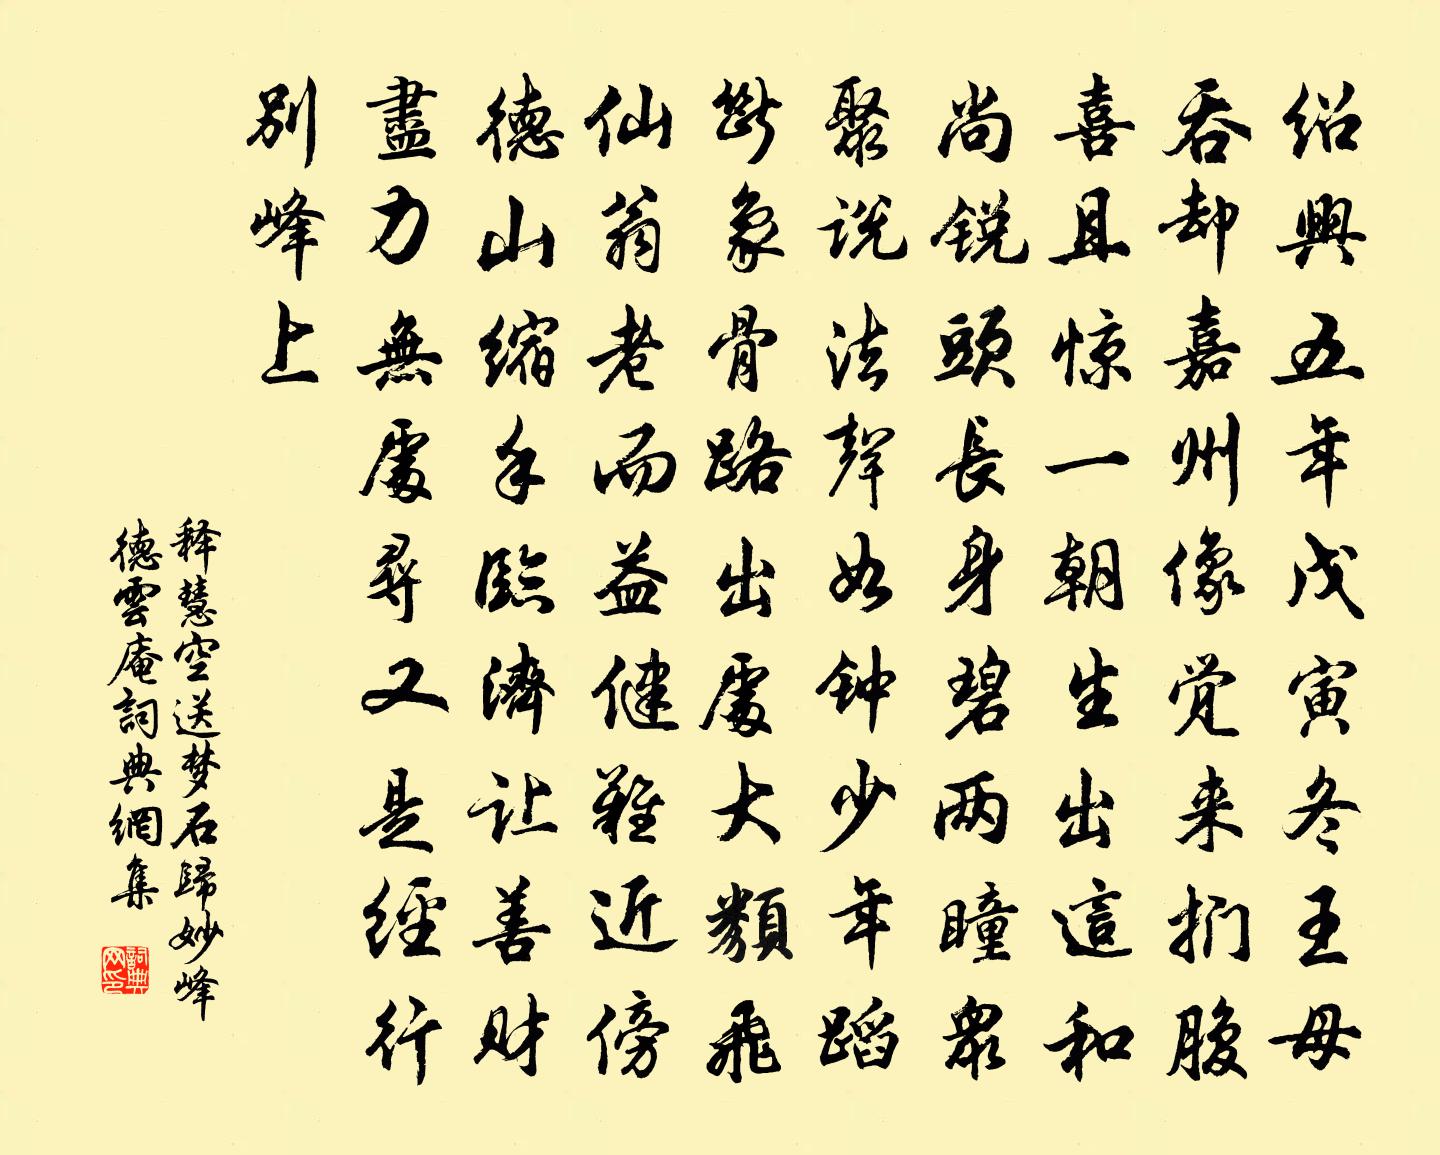 绍興五年戊寅冬王母
吞却嘉州像觉来捫腹
喜且惊一朝生出這和
尚锐頭長身碧两瞳眾
聚说法聲如钟少年蹈
斷象骨路出處大類飛
仙翁老而益健難近傍
德山缩手臨濟让善财
盡力無處尋又是經行
别峰上
释慧空送梦石歸妙峰
德雲庵詞典網集
詞典网印